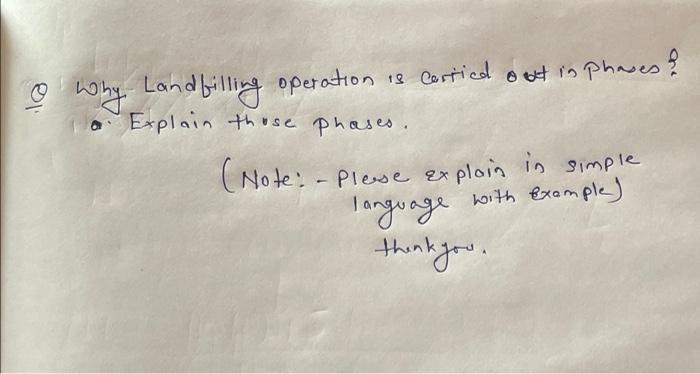 Q Why Landfilling operation is carried out in phases?
a. Explain those phases.
(Note:- Please explain in simple
language with example)
thank you.